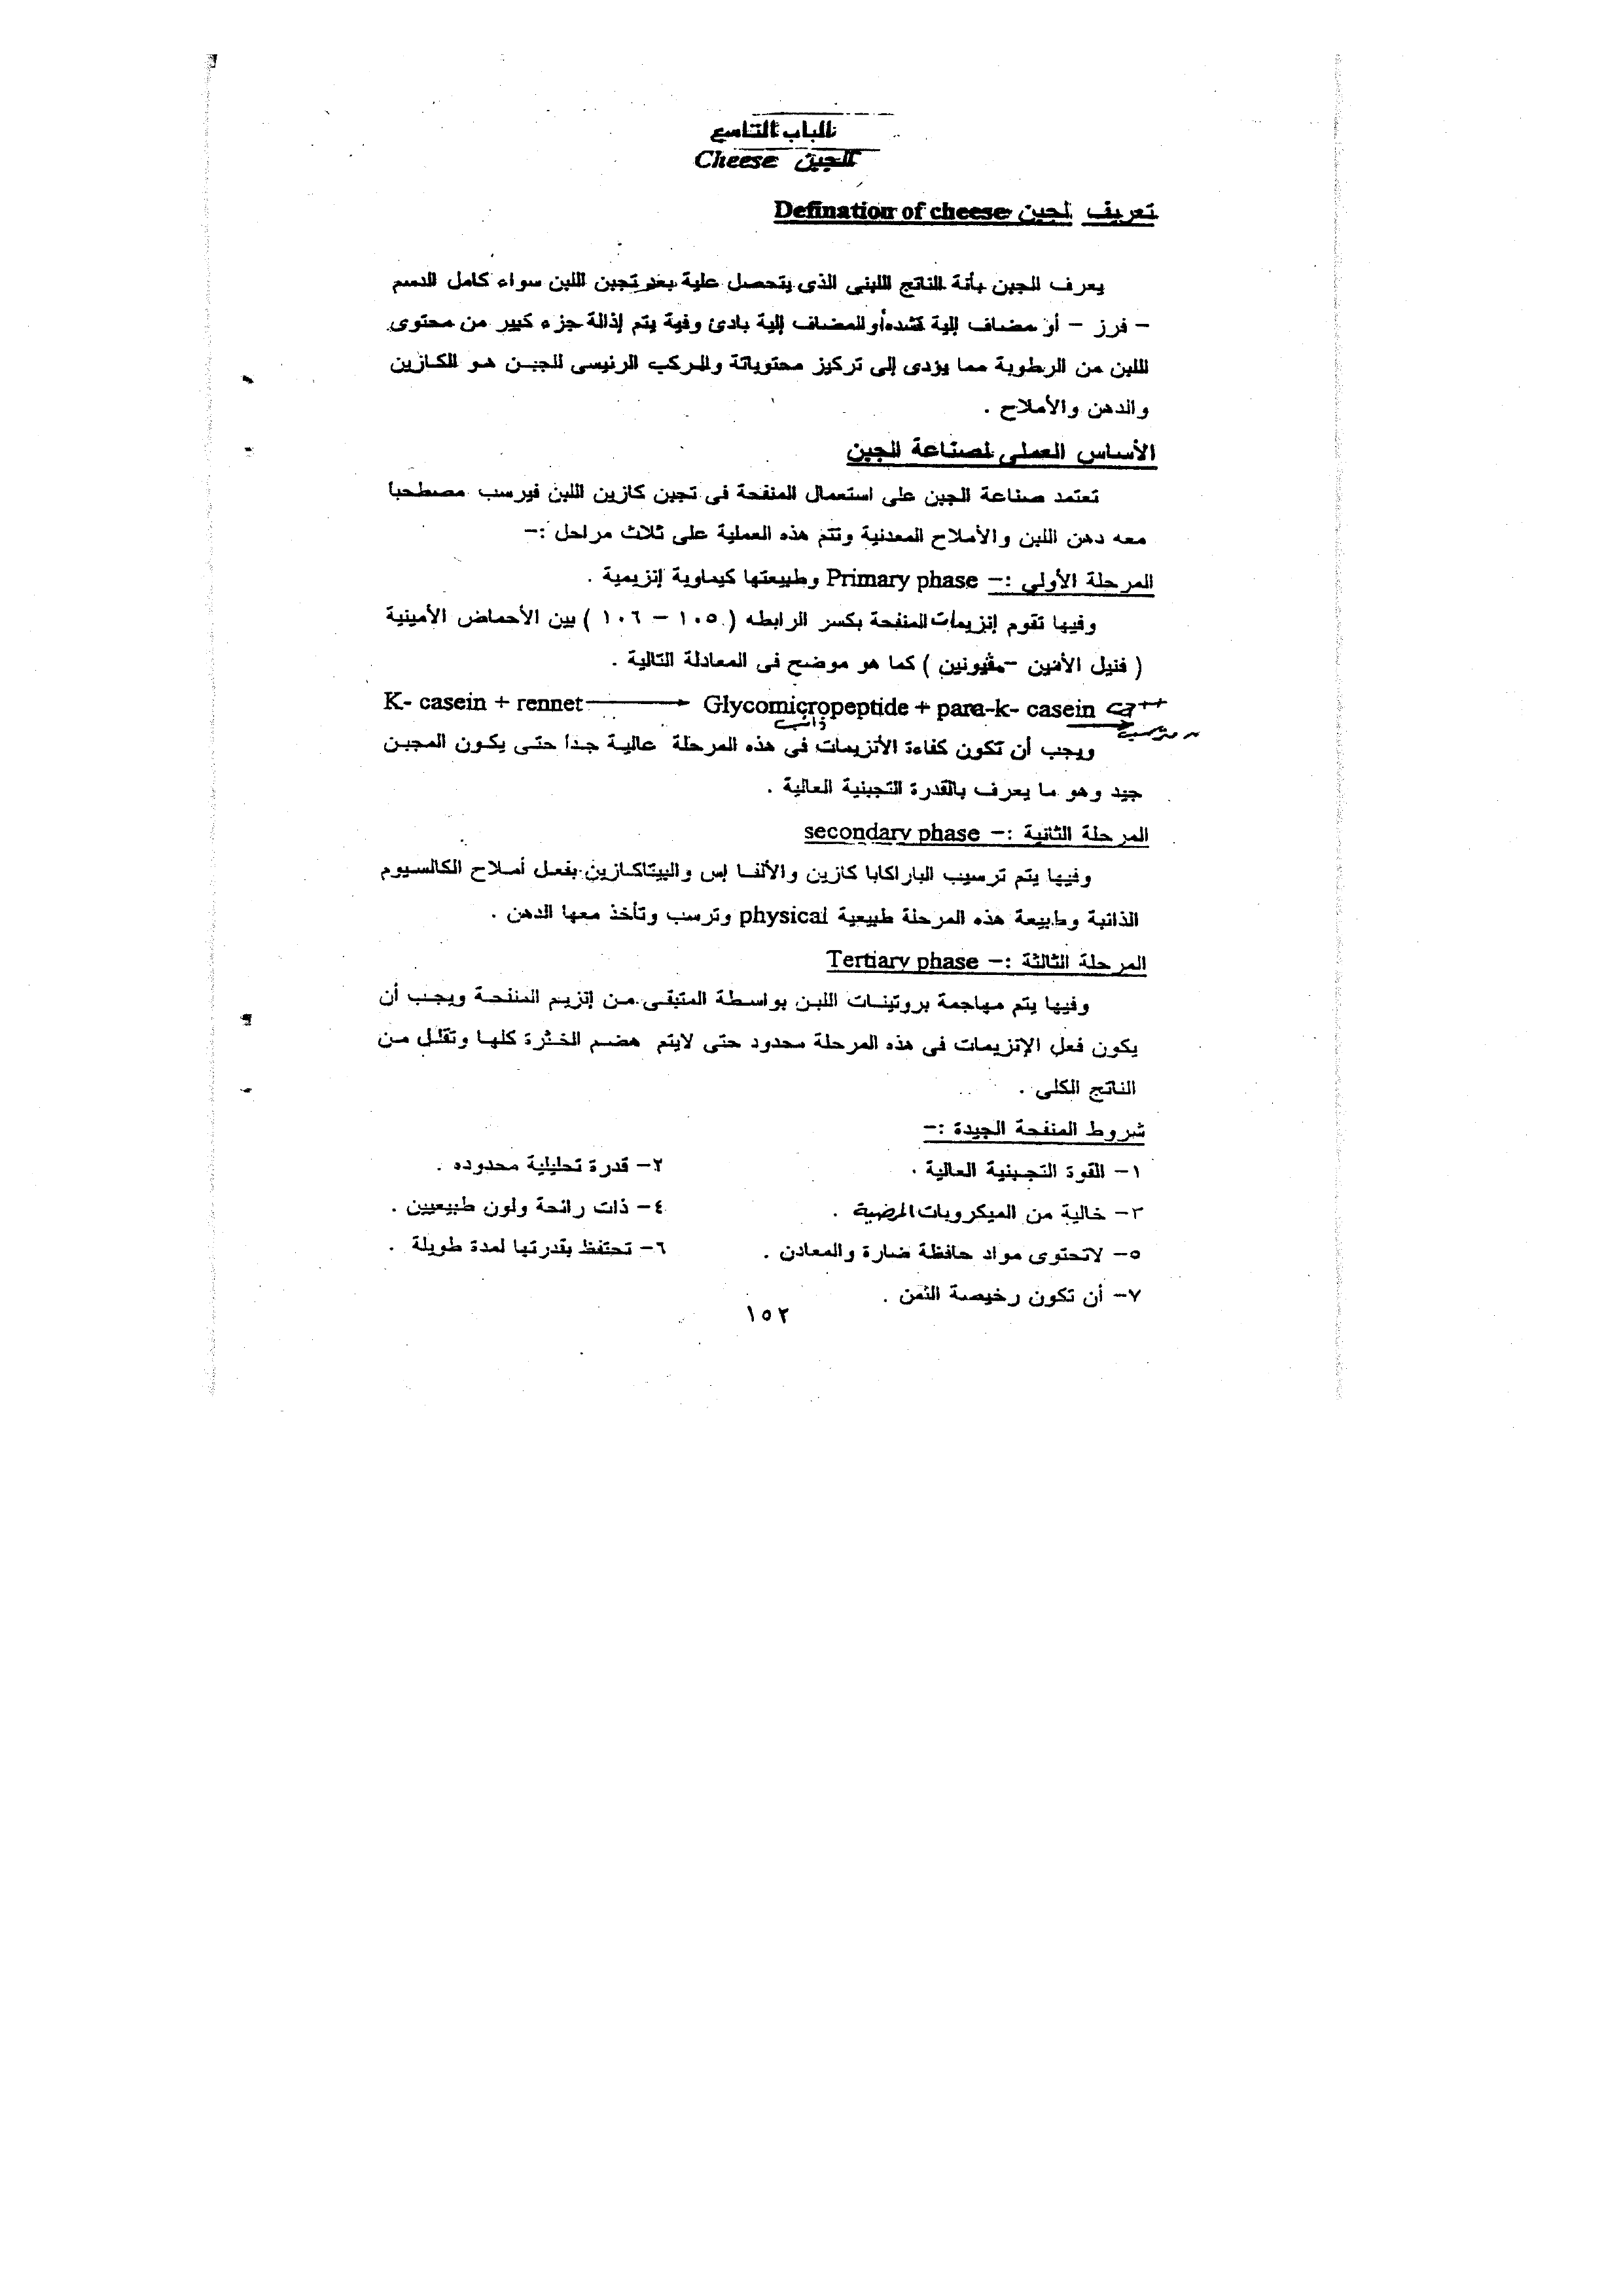 الباب التاسع
الجبن Cheese
تعريف لجبن Defination of cheese
يعرف الجبن بأنة الناتج اللبنى الذى يتحصل علية بعد تجبن اللبن سواء كامل الدسم
– فرز – أو مضاف إلية قشده أو المضاف إلية بادئ وفية يتم إذالة جزء كبير من محتوى
اللبن من الرطوبة مما يؤدى إلى تركيز محتوياتة والمركب الرئيسى للجبن هو الكازين
والدهن والأملاح .
الأساس العملى لصناعة الجبن
تعتمد صناعة الجبن على استعمال المنفحة فى تجبن كازين اللبن فيرسب مصطحبا
معه دهن اللبن والأملاح المعدنية وتتم هذه العملية على ثلاث مراحل :–
المرحلة الأولى :– Primary phase وطبيعتها كيماوية إنزيمية .
وفيها تقوم إنزيمات المنفحة بكسر الرابطه ( ١٠٥ – ١٠٦ ) بين الأحماض الأمينية
( فنيل الأنين – مثيونين ) كما هو موضح فى المعادلة التالية .
K- casein + rennet → Glycomicropeptide + para-k- casein Ca++
ذائب
ويجب أن تكون كفاءة الأنزيمات فى هذه المرحلة عالية جدا حتى يكون المجبن
جيد وهو ما يعرف بالقدرة التجبنية العالية .
المرحلة الثانية :– secondary phase
وفيها يتم ترسيب الباراكابا كازين والألفا إس والبيتاكازين بفعل أملاح الكالسيوم
الذائبة وطبيعة هذه المرحلة طبيعية physical وترسب وتأخذ معها الدهن .
المرحلة الثالثة :– Tertiary phase
وفيها يتم مهاجمة بروتينات اللبن بواسطة المتبقى من إنزيم المنفحة ويجب أن
يكون فعل الإنزيمات فى هذه المرحلة محدود حتى لايتم هضم الخثرة كلها وتقلل من
الناتج الكلى .
شروط المنفحة الجيدة :–
١– القوة التجبنية العالية . ٢– قدرة تحليلية محدوده .
٣– خالية من الميكروبات المرضية . ٤– ذات رائحة ولون طبيعيين .
٥– لاتحتوى مواد حافظة ضارة والمعادن . ٦– تحتفظ بقدرتها لمدة طويلة .
٧– أن تكون رخيصة الثمن .
١٥٢